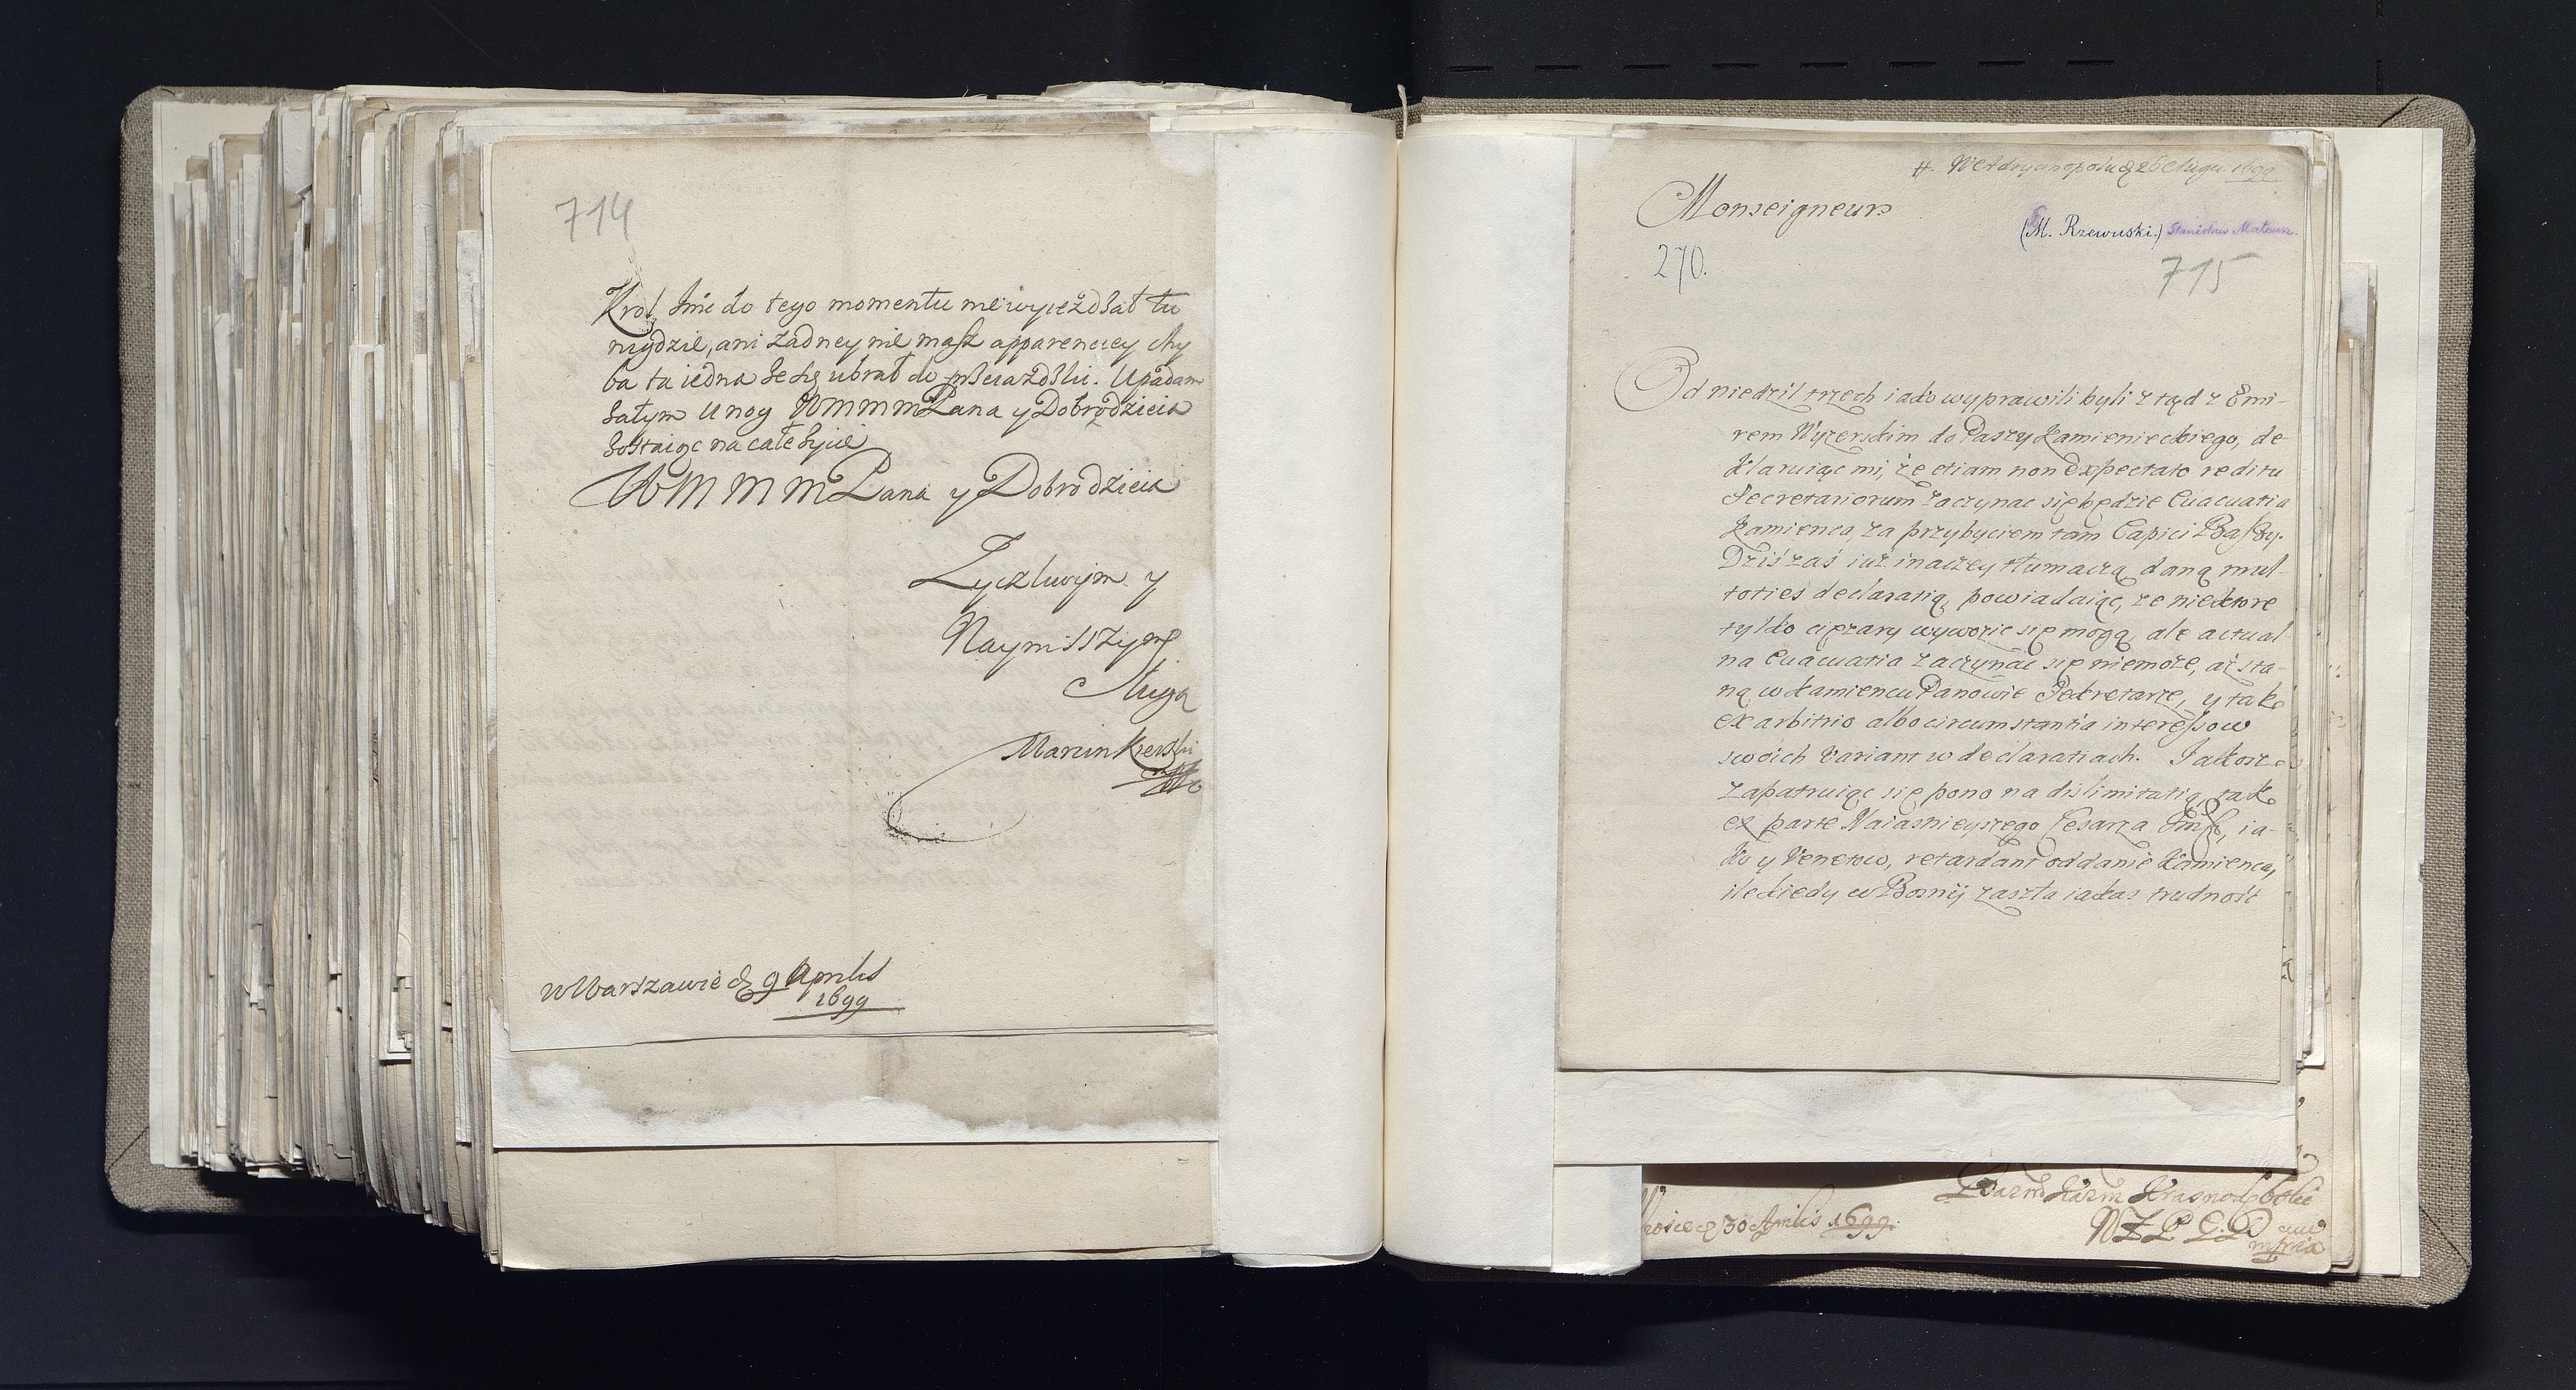 714
Krol Jmc do tego momentu niewyieżdsał tu
nigdzie, ani żadney nie masz apparenciey chy
ba ta iedna
Upadam
satym U nog WMMMPana y Dobrodzieia
Sostaiąc na całe życie
WMMMPana y Dobrodzieia
Zyczliwym y
Naynisszym
Sługą
Marcin Kreski
mp
w Warszawie d. 9 Aprilis
1699
# W Adryanopolu d. 26 Augu. 1699
Monseigneur
(M. Rzewuski.) Stanisław Mateusz.
270.
715
Od niedzil trzech iako wyprawili byli z tąd z Emi-
rem Wyzerskim do Paszy Kamienieckiego, de-
klaruiąc mi, że etiam non expectato reditu
Secretariorum zaczynac się będzie Euacuatia
Kamienca, za przybyciem tam Capici Baszy.
Dziś zaś iuż inaczey tłumaczą daną mul-
toties declaratią, powiadaiąc, że niektore
tylko ciężary wywozic się mogą, ale actual-
na Euacuatia zaczynać się niemoże, aż sta-
ną w Kamiencu Panowie Sekretarze, y tak
ex arbitrio albo circumstantia interessow
swoich variant w declaratiach. Jakosz
zapatruiąc się pono na dislimitatią, tak
ex parte Naiasnieyszego Cesarza Jmsci, ia-
ko y Venetow, retardant oddanie Kamienca,
ile kiedy w Bosnij zaszła iakas trudność
d 30 Aprilis 1699.
mpria